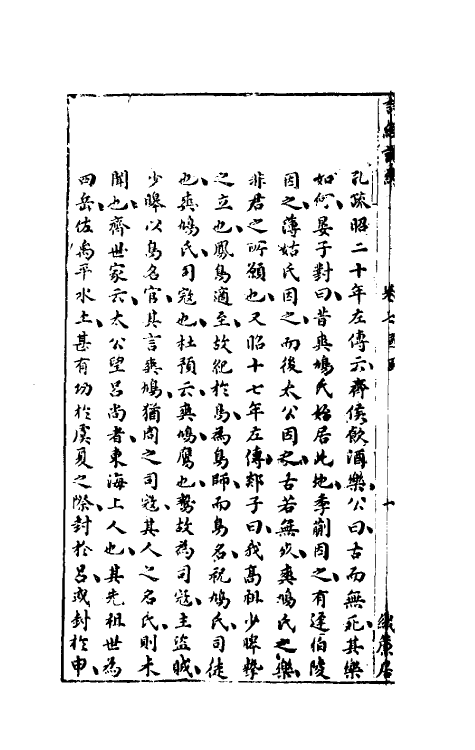 孔疏昭二十年左傳云齊侯飲酒樂公曰古而無死其樂
如何晏子對曰昔爽鳩氏始居此地季萴因之有逢伯陵
因之薄姑氏因之而後太公因之古若無死爽鳩氏之樂
非君之所願也又昭十七年左傳郯子曰我髙祖少皞摯
之立也鳳鳥適至故紀於鳥為鳥師而鳥名祝鳩氏司徒
也爽鳩氏司寇也杜預云爽鳩鷹也鷙故為司寇主盜賊
少皞以鳥名官其言爽鳩猶周之司寇其人之名氏則未
聞也齊世家云太公望呂尚者東海上人也其先祖世為
四岳佐禹平水土甚有功於虞夏之際封於呂或封於申